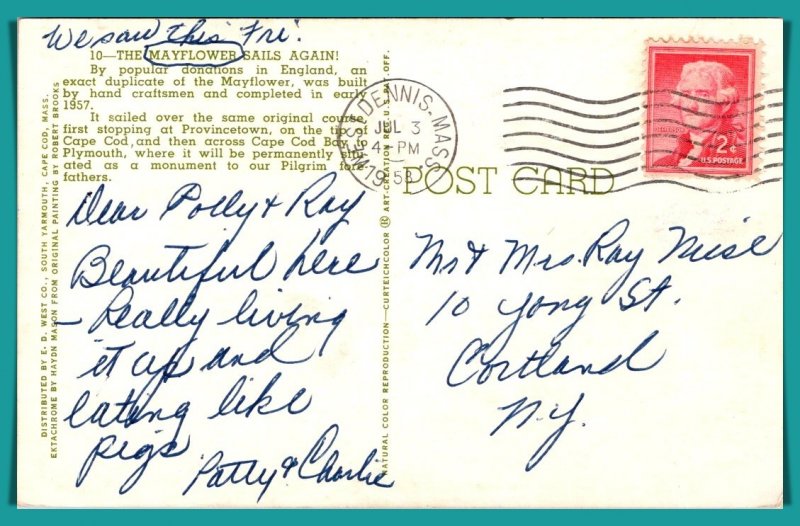 We saw this Fri.
10—THE MAYFLOWER SAILS AGAIN!
By popular donations in England, an
exact duplicate of the Mayflower, was built
by hand craftsmen and completed in early
1957.
It sailed over the same original course,
first stopping at Provincetown, on the tip
Cape Cod, and then across Cape Cod Bay
Plymouth, where it will be permanently
ated as a monument to our Pilgrim fore-
fathers.
Dear Polly & Ray
Beautiful here
– Really living
it up and
eating like
pigs
Patty & Charlie
DISTRIBUTED BY E. D. WEST CO., SOUTH YARMOUTH, CAPE COD, MASS.
EKTACHROME BY HAYDN MASON FROM ORIGINAL PAINTING BY ROBERT BROOKS
NATURAL COLOR REPRODUCTION—CURTEICHCOLOR ® ART-CREATION REG. U.S. PAT. OFF.
WEST DENNIS-MASS.
JUL 3
PM
1958
2¢
U.S. POSTAGE
POST CARD
Mr & Mrs. Ray Mise
10 Yong St.
Cortland
N.Y.